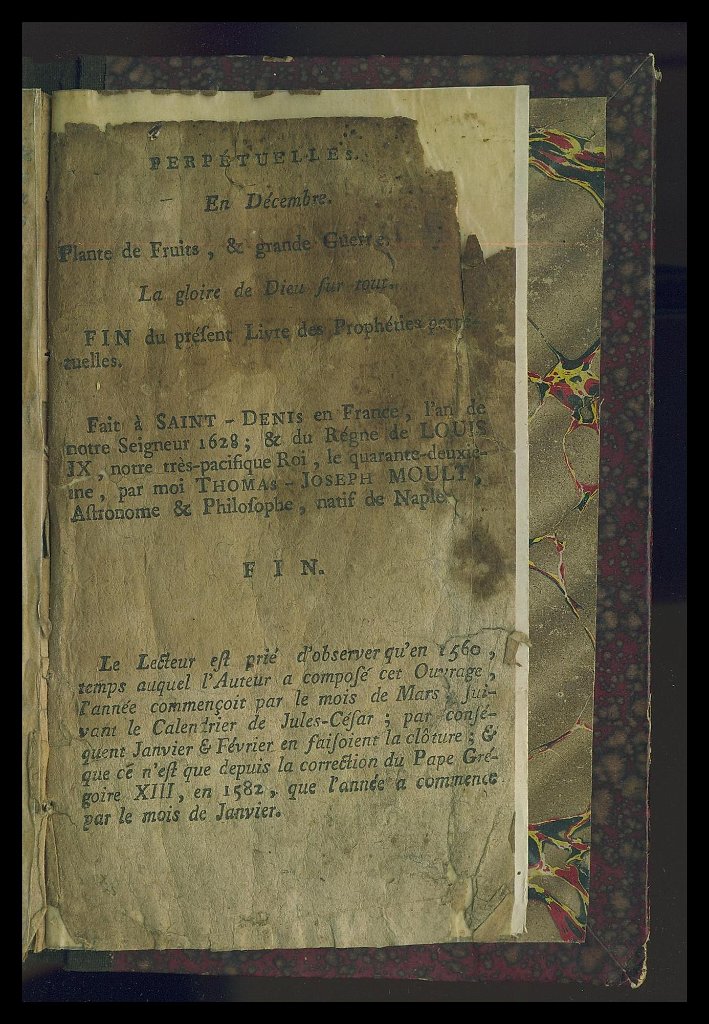 PERPÉTUELLES.
En Décembre.
Plante de Fruits, & grande Guerre.
La gloire de Dieu ſur tout.
FIN du préſent Livre des Prophéties perpé-
tuelles.
Fait à SAINT-DENIS en France, l'an de
notre Seigneur 1628; & du Régne de LOUIS
IX, notre très-pacifique Roi, le quarante-deuxié-
me, par moi THOMAS-JOSEPH MOULT,
Aſtronome & Philoſophe, natif de Naples.
FIN.
Le Lecteur eſt prié d'obſerver qu'en 1560,
temps auquel l'Auteur a compoſé cet Ouvrage,
l'année commençoit par le mois de Mars, ſui-
vant le Calendrier de Jules-Céſar; par conſé-
quent Janvier & Février en faiſoient la clôture; &
que ce n'eſt que depuis la correction du Pape Gré-
goire XIII, en 1582, que l'année a commencé
par le mois de Janvier.